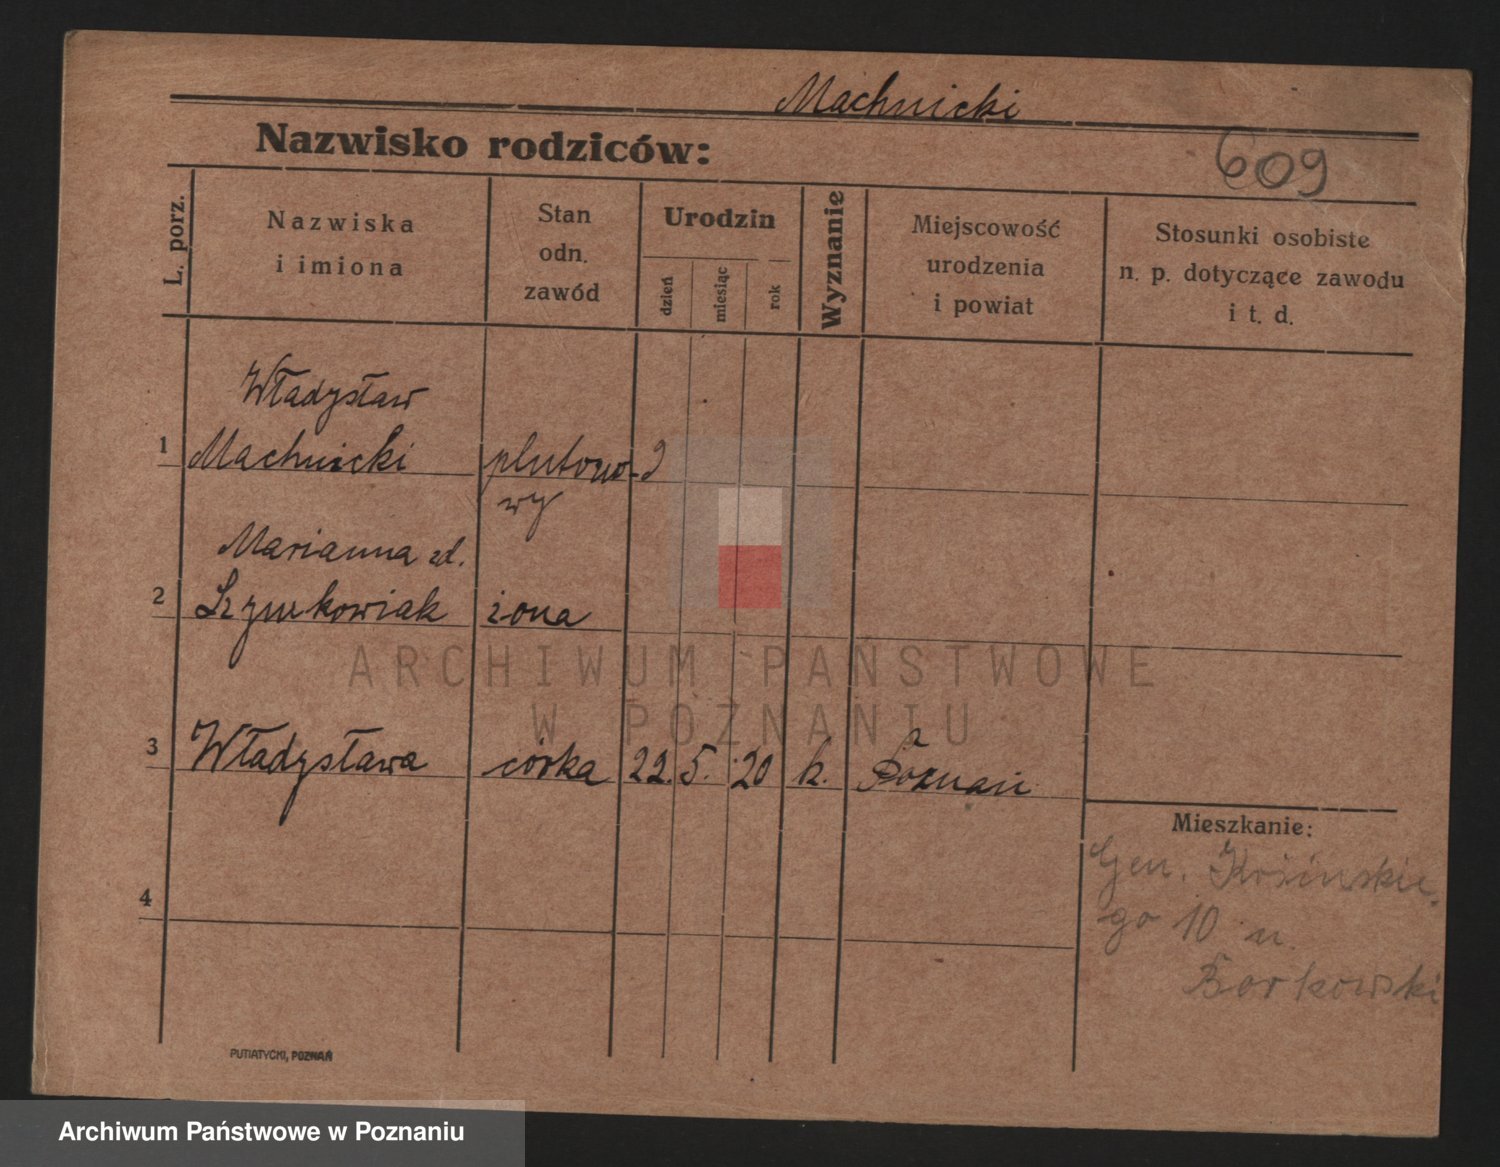 Machnicki
Nazwisko rodziców:
609
L. porz.
Nazwiska
i imiona
Stan
odn.
zawód
Urodzin
dzień
miesiąc
rok
Wyznanie
Miejscowość
urodzenia
i powiat
Stosunki osobiste
n. p. dotyczące zawodu
i t. d.
Władysław
1 Machnicki plutono-
wy
Marianna zd.
2 Szymkowiak żona
ARCHIWUM PAŃSTWOWE
W POZNANIU
3 Władysława córka 22. 5. 20 k. Poznań
Mieszkanie:
Gen. Kosińskie-
go 10 u.
Borkowski
4
PUTIATYCKI, POZNAŃ
Archiwum Państwowe w Poznaniu